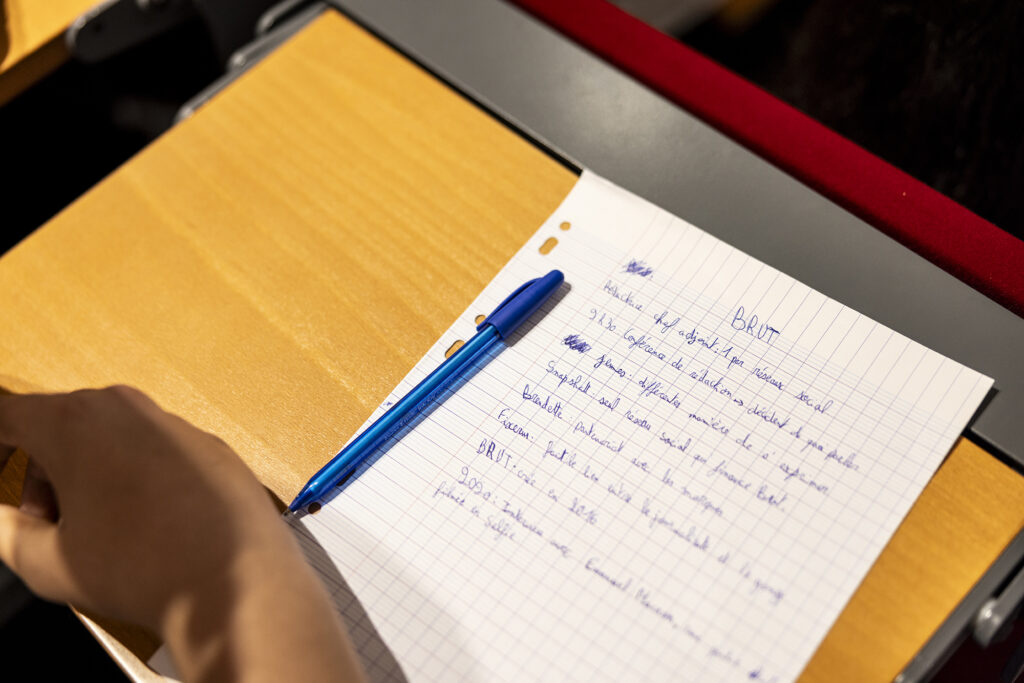 BRUT
chef adjoint : 1 par réseau social
9h30 : Conférence de rédaction => décident de quoi parler
: différentes manière de s'exprimer
Snapchat : seul réseau social qui finance Brut.
: partenariat avec les marques
Fixeur : fait le lien entre le journaliste et le
BRUT : créé en 2016
2020 : Interview avec Emmanuel Macron,
filmée en selfie